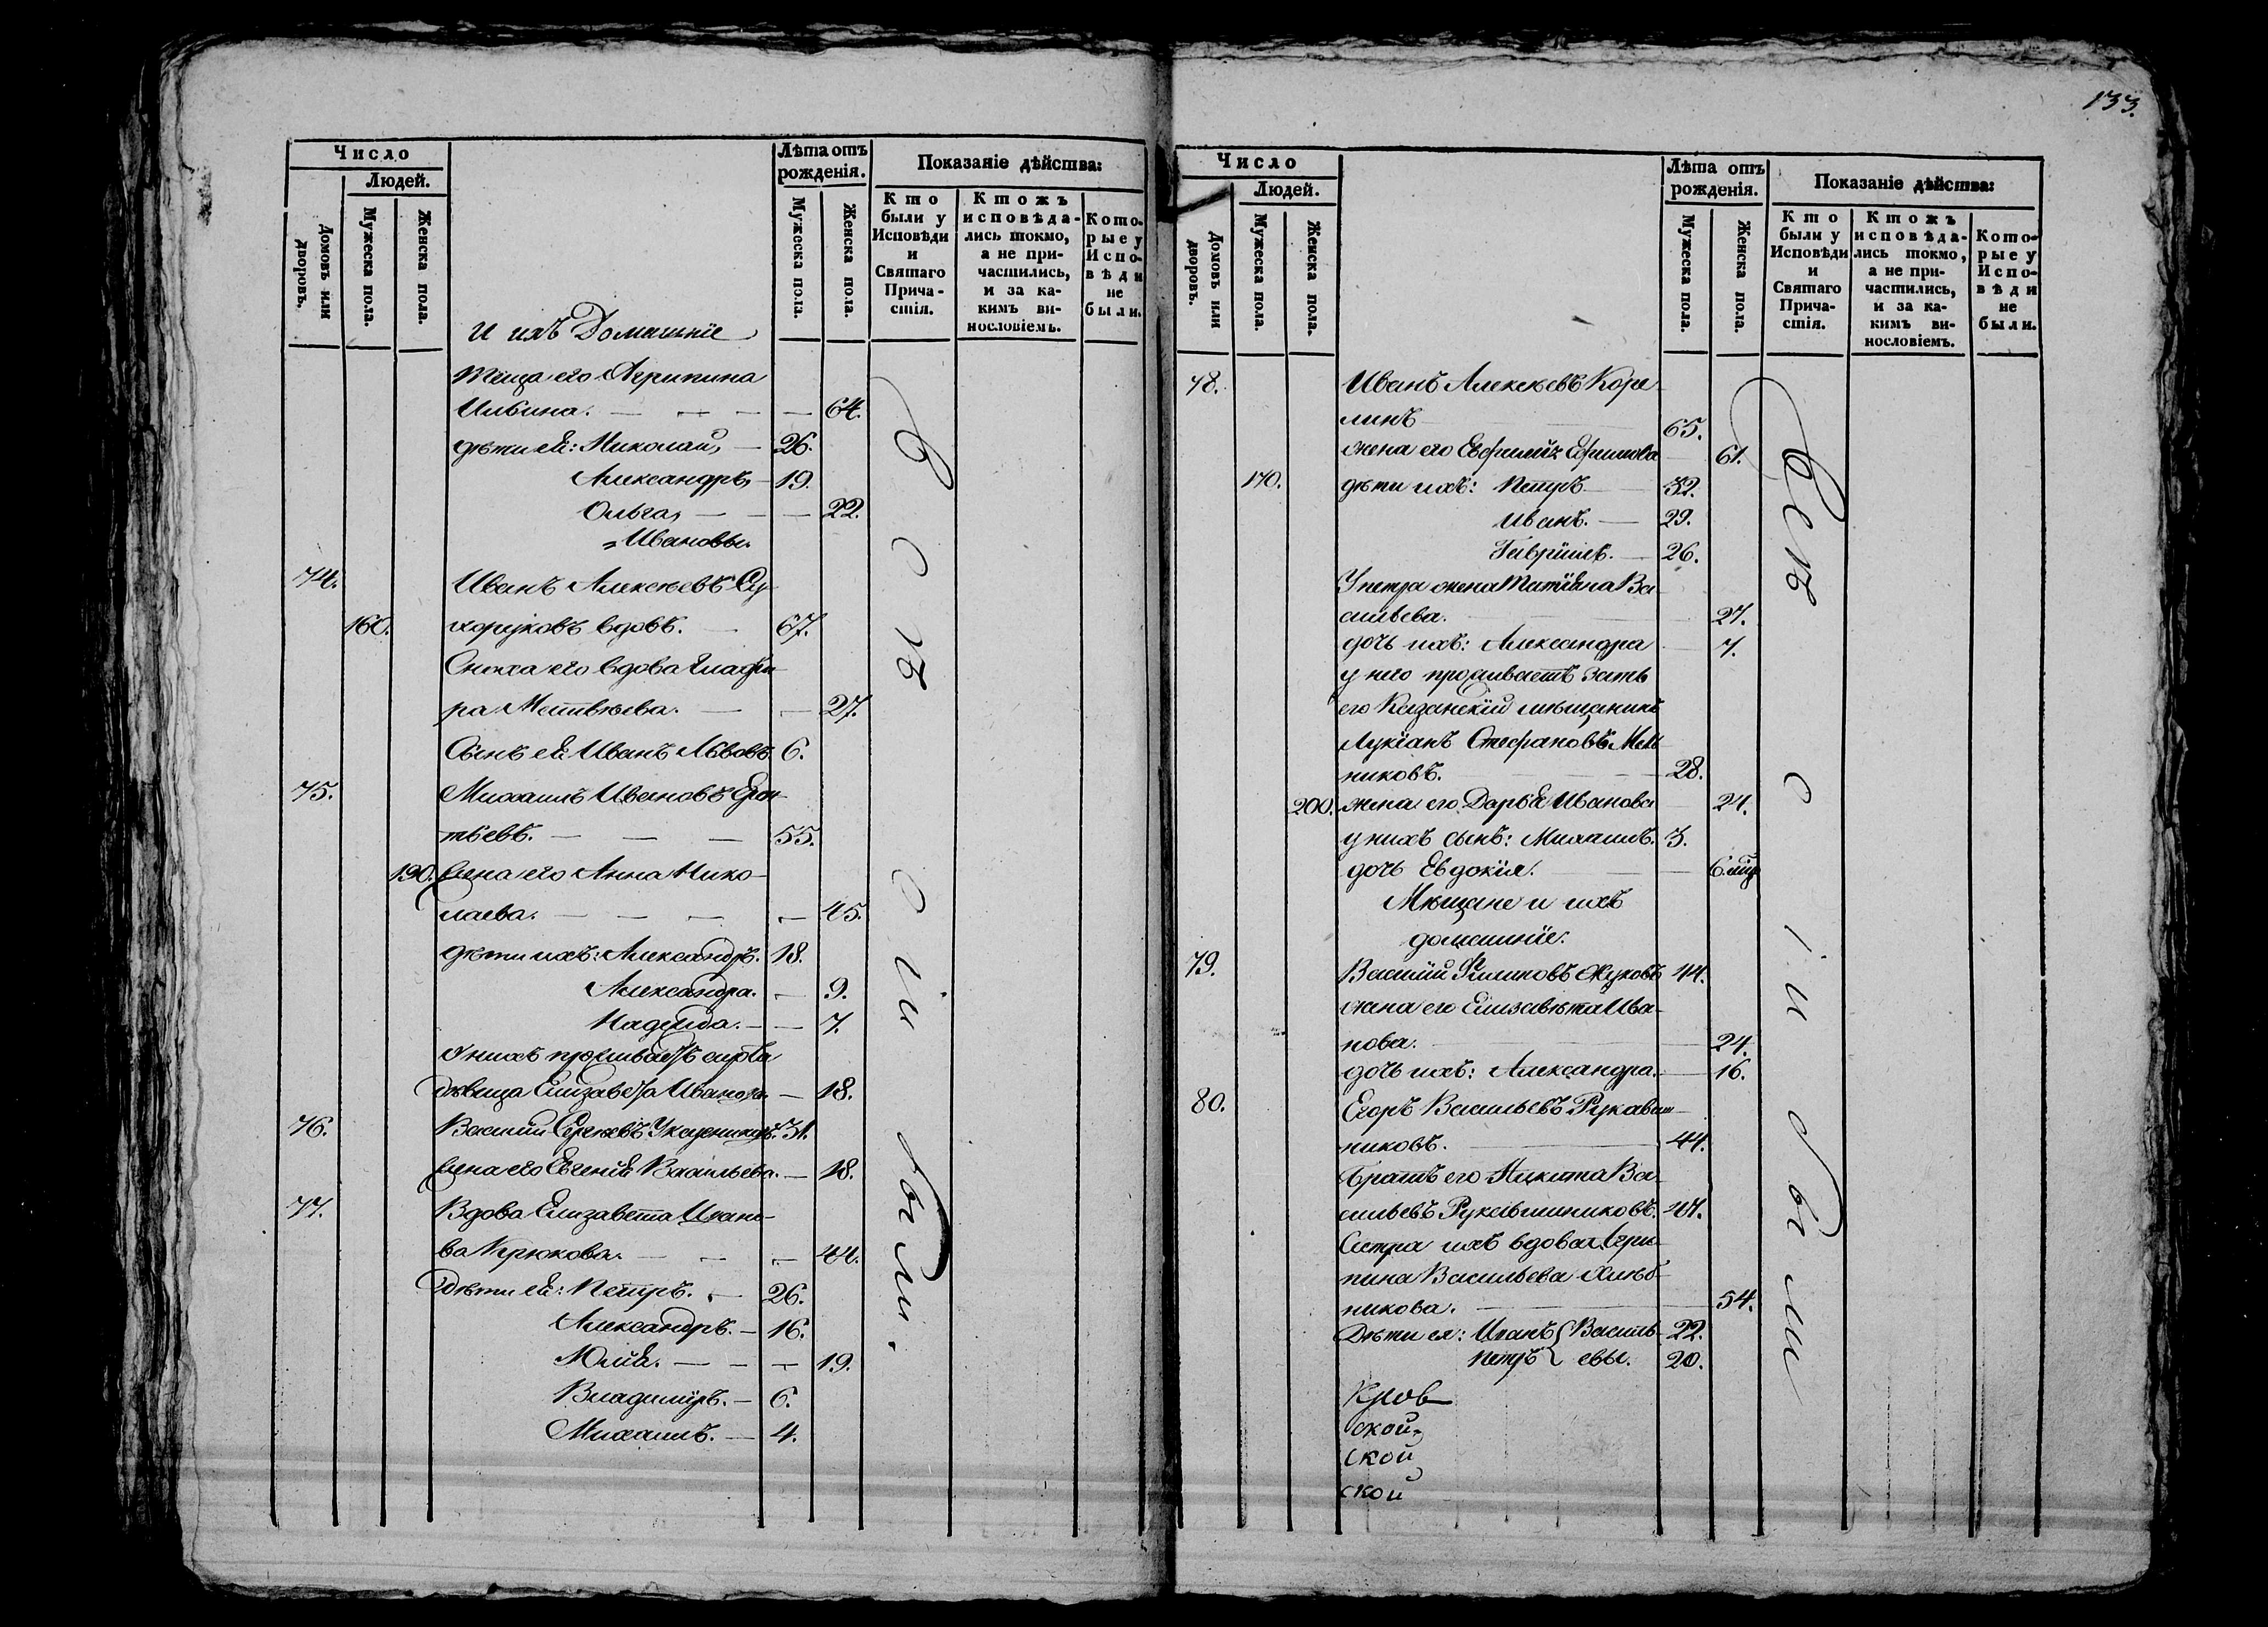 133.
Число
Людей.
Домовъ или дворовъ.
Мужеска пола.
Женска пола.
и ихъ Домашніе
Лѣта отъ рожденія.
Мужеска пола.
Женска пола.
Показаніе дѣйства:
Кто были у Исповѣди и Святаго Причастія.
Ктожъ исповѣдались токмо, а не причастились, и за какимъ винословіемъ.
Которые у Исповѣди не были.
теща его Агрипина
Ильина. — 64.
дѣти ея: Николай, — 26.
Александръ, — 19.
Ольга, — 22.
Ивановы.
74. Иванъ Алексѣевъ Су-
160. хоруковъ вдовъ. — 67.
Сноха его вдова Глафи-
ра Матвѣева. — 27.
Сынъ ея Иванъ Львовъ. 6.
75. Михаилъ Ивановъ
тьевъ. — 55.
190. Жена его Анна Нико-
лаева. — 45.
дѣти ихъ: Александръ. 18.
Александра. — 9.
Надежда. — 7.
У нихъ проживаетъ сирота
дѣвица Елизавета Иванова. — 18.
76. Василій Сергѣевъ Уксусниковъ. 31.
Жена его Евгенія Васильева. — 18.
77. Вдова Елизавета Ивано-
ва Крюкова. — 44.
Дѣти ея: Петръ. — 26.
Александръ. — 16.
Юлія. — 19.
Владиміръ. — 6.
Михаилъ. — 4.
всѣ сіи были.
Число
Людей.
Домовъ или дворовъ.
Мужеска пола.
Женска пола.
Лѣта отъ рожденія.
Мужеска пола.
Женска пола.
Показаніе дѣйства:
Кто были у Исповѣди и Святаго Причастія.
Ктожъ исповѣдались токмо, а не причастились, и за какимъ винословіемъ.
Которые у Исповѣди не были.
78. Иванъ Алексѣевъ Коре-
линъ 65.
жена его Евфимія Ефимова 61.
170. дѣти ихъ: Петръ — 32.
Иванъ. — 29.
Гавріилъ. — 26.
У Петра жена Татіяна Ва-
сильева. 27.
дочь ихъ: Александра 7.
у него проживаетъ зять
его Казанскій мѣщанинъ
Лукіанъ Стефановъ Мель-
никовъ. 28.
200. жена его Дарья Иванова 24.
у нихъ сынъ: Михаилъ. 3.
дочь Евдокія. 6.
Мѣщане и ихъ
домашніе:
79. Василій Филиповъ Жуковъ 44.
жена его Елизавета Ива-
нова. 24.
дочь ихъ: Александра. 16.
80. Егоръ Васильевъ Рукавиш-
никовъ. 44.
Братъ его Никита Ва-
сильевъ Рукавишниковъ. 47.
Сестра ихъ вдова Агри-
пина Васильева Хлѣб-
никова. 54.
Дѣти ея: Иванъ { Василь- 22.
Петръ { евы. 20.
всѣ сіи были
Кров
ской
ской
ской